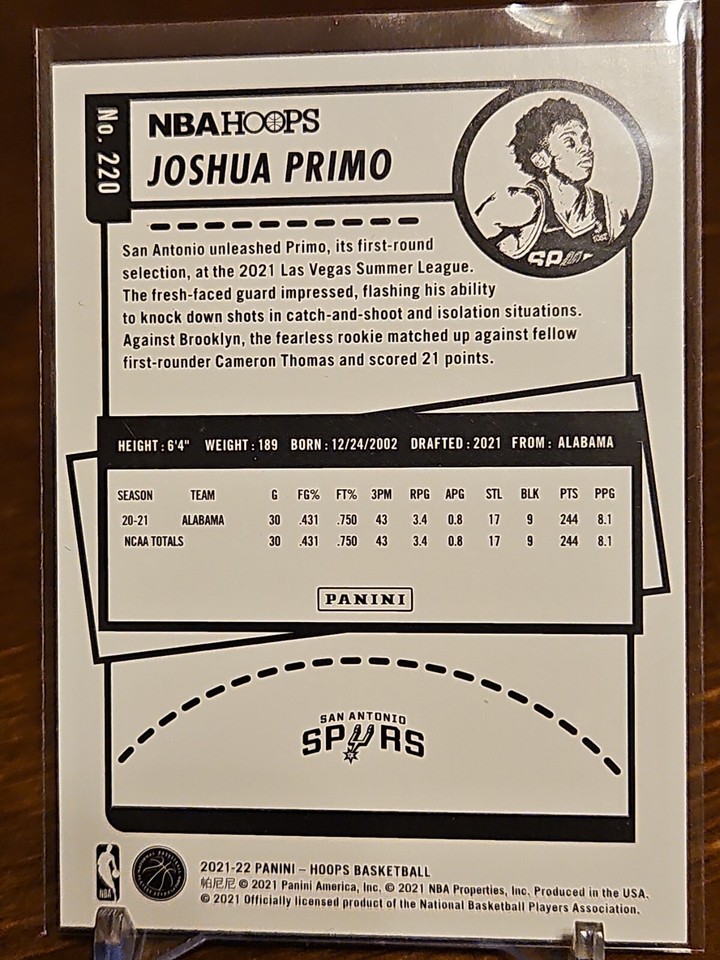 No. 220
NBA HOOPS
JOSHUA PRIMO
San Antonio unleashed Primo, its first-round
selection, at the 2021 Las Vegas Summer League.
The fresh-faced guard impressed, flashing his ability
to knock down shots in catch-and-shoot and isolation situations.
Against Brooklyn, the fearless rookie matched up against fellow
first-rounder Cameron Thomas and scored 21 points.
HEIGHT: 6'4" WEIGHT: 189 BORN: 12/24/2002 DRAFTED: 2021 FROM: ALABAMA
SEASON TEAM G FG% FT% 3PM RPG APG STL BLK PTS PPG
20-21 ALABAMA 30 .431 .750 43 3.4 0.8 17 9 244 8.1
NCAA TOTALS 30 .431 .750 43 3.4 0.8 17 9 244 8.1
PANINI
SAN ANTONIO
SPURS
NBA
2021-22 PANINI – HOOPS BASKETBALL
帕尼尼 © 2021 Panini America, Inc. © 2021 NBA Properties, Inc. Produced in the USA.
© 2021 Officially licensed product of the National Basketball Players Association.